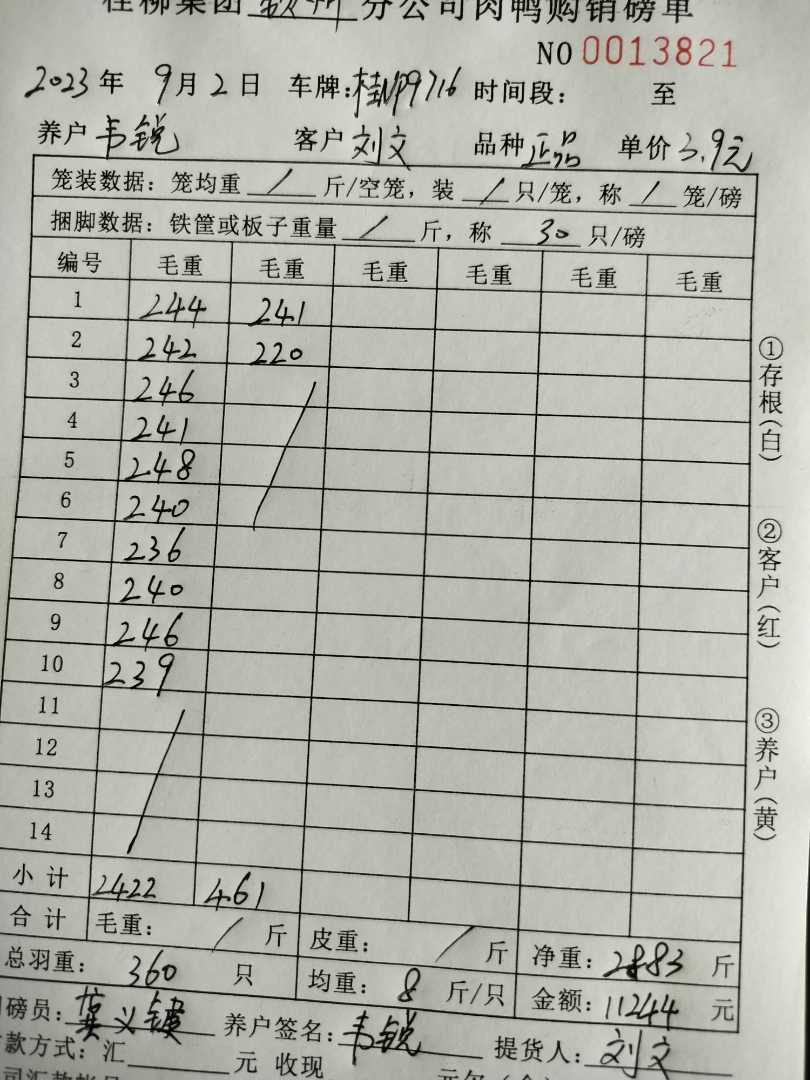 桂柳集团 钦州 分公司肉鸭购销磅单
NO 0013821
2023年 9月2日 车牌:桂NP9716 时间段: 至
养户 韦锐 客户 刘文 品种 正品 单价 3.9元
笼装数据:笼均重 / 斤/空笼,装 / 只/笼,称 / 笼/磅
捆脚数据:铁筐或板子重量 / 斤,称 30 只/磅
编号 毛重 毛重 毛重 毛重 毛重 毛重
1 244 241
2 242 220
3 246
4 241
5 248
6 240
7 236
8 240
9 246
10 239
11
12
13
14
小计 2422 461
合计 毛重: / 斤 皮重: / 斤 净重: 2883 斤
总羽重: 360 只 均重: 8 斤/只 金额: 11244 元
磅员: 养户签名: 韦锐 提货人: 刘文
款方式:汇 元 收现
①存根(白)
②客户(红)
③养户(黄)